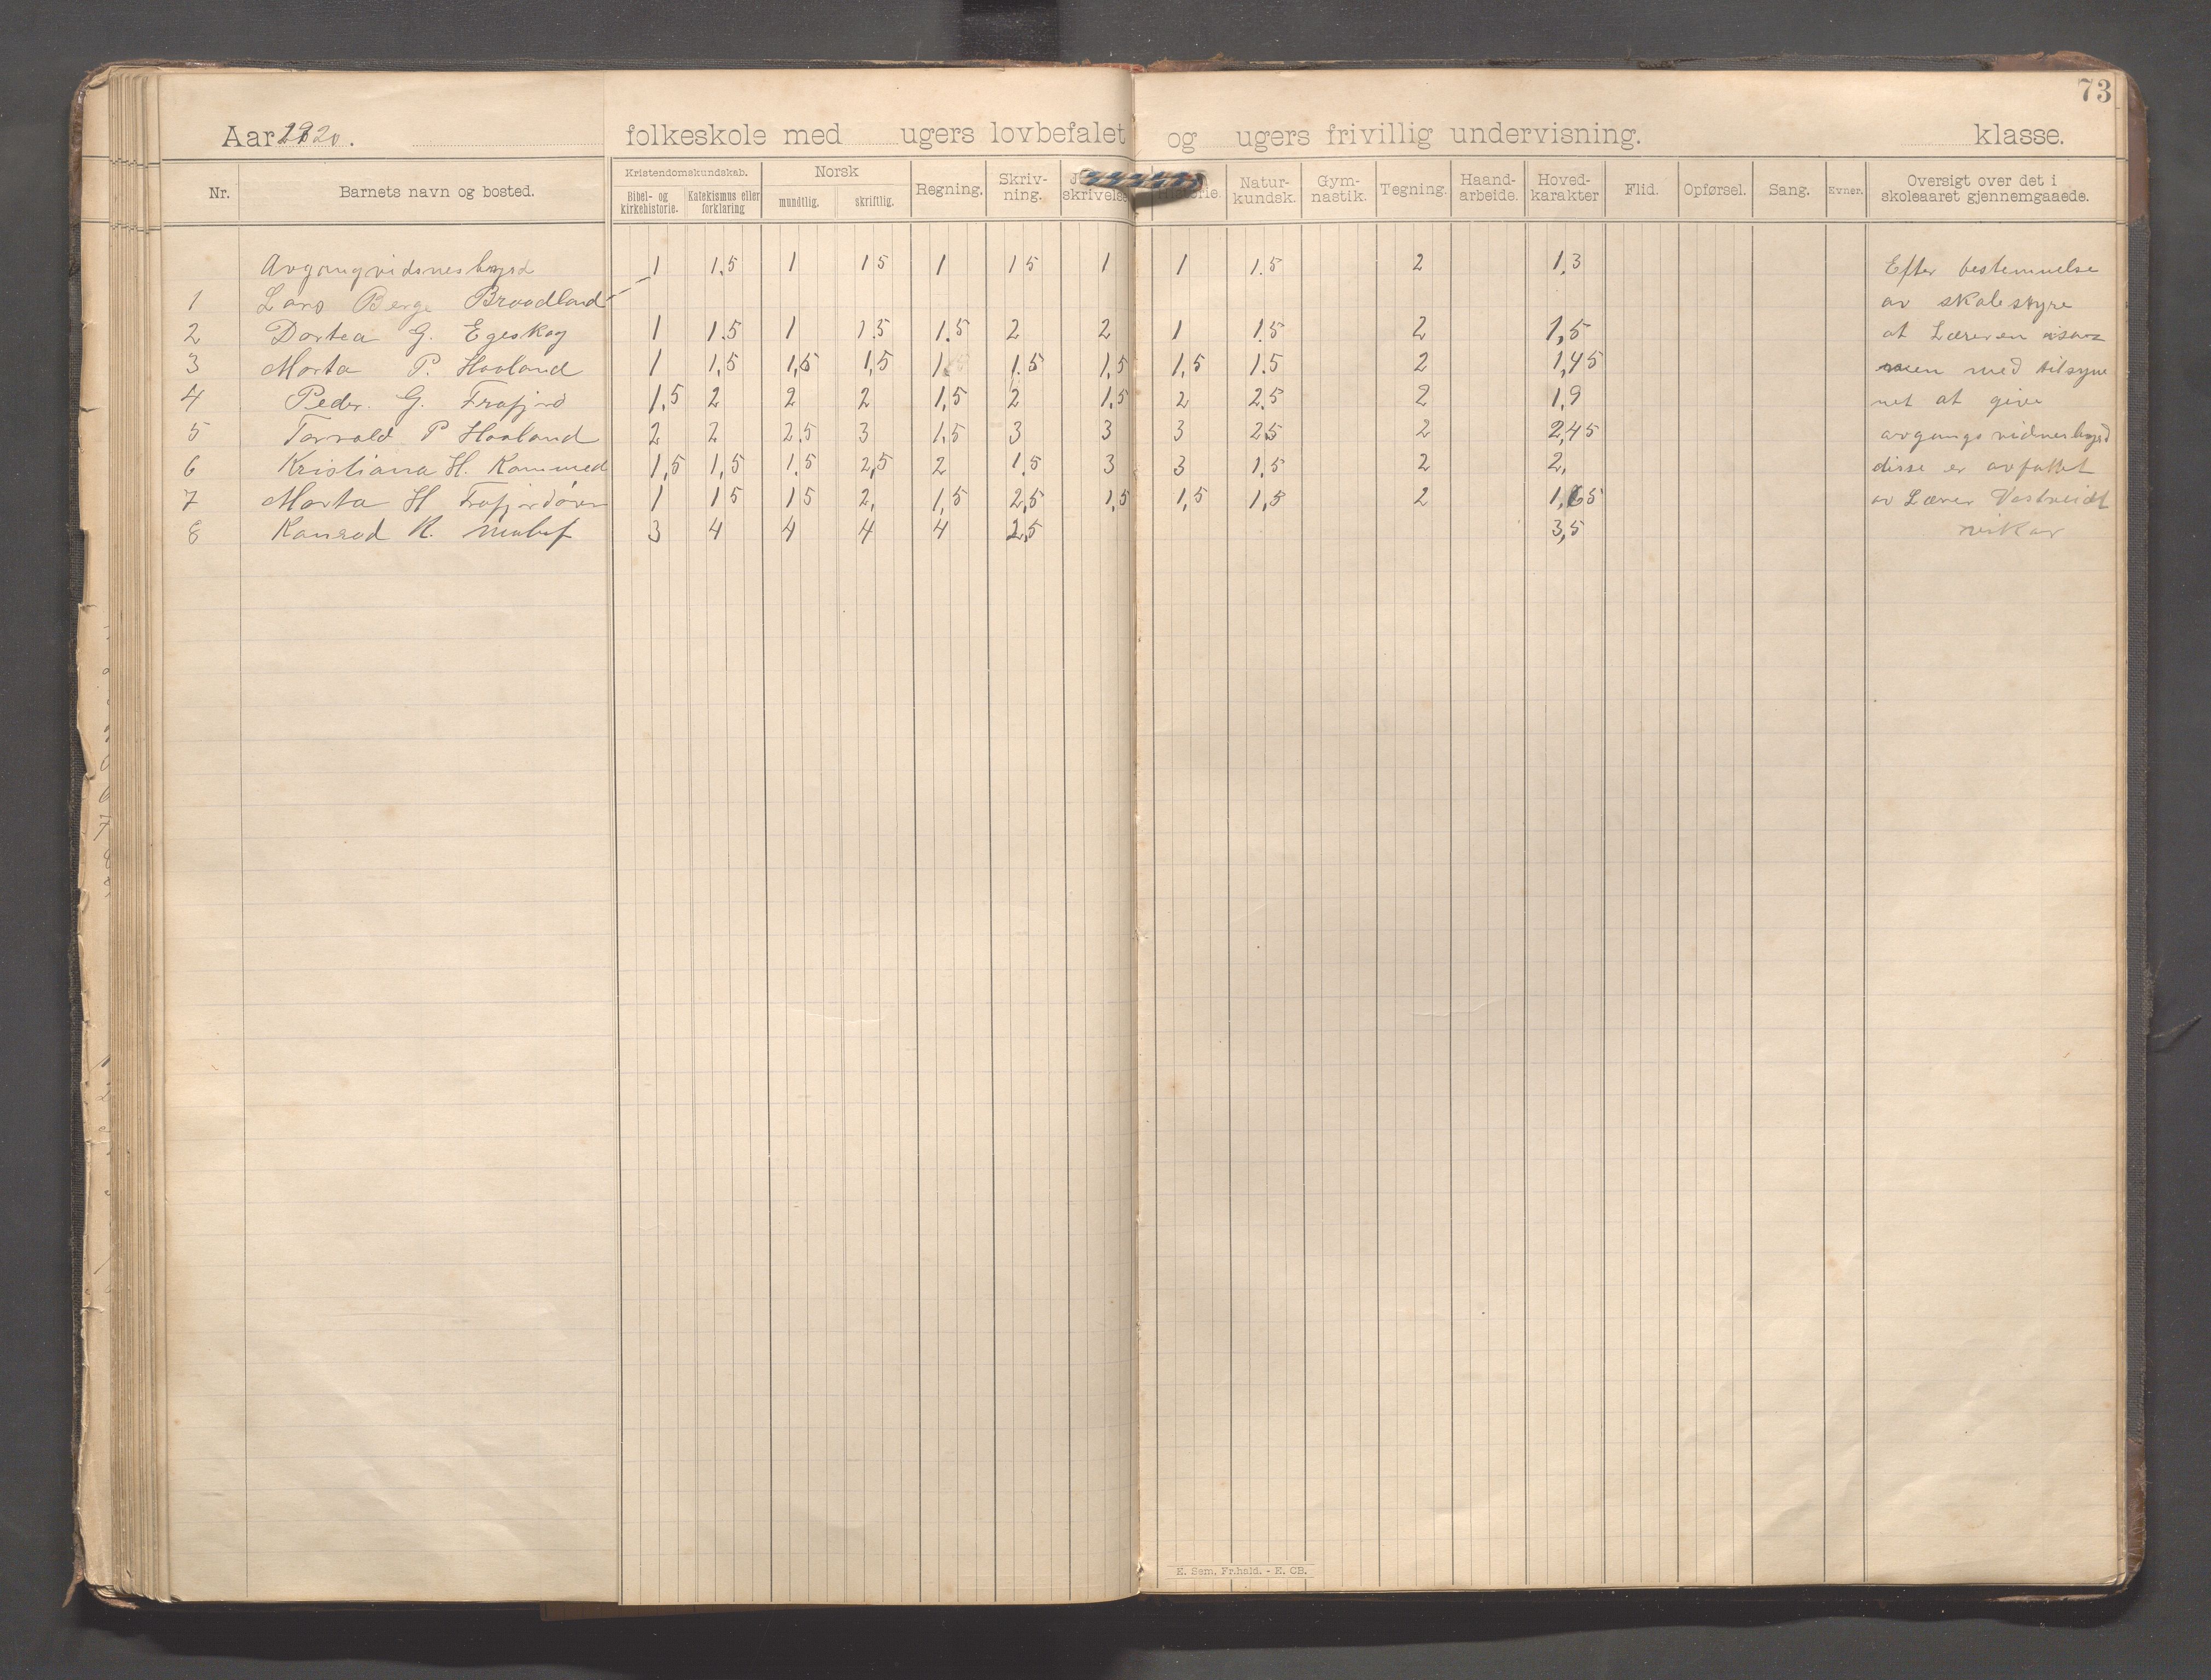 73
Aar 1920. folkeskole med ugers lovbefalet og ugers frivillig undervisning. klasse.
Nr. Barnets navn og bosted. Kristendomskundskab. Bibel- og kirkehistorie. Katekismus eller forklaring Norsk mundtlig. skriftlig. Regning. Skriv-ning. skrivelse Natur-kundsk. Gym-nastik. Tegning. Haand-arbeide. Hoved-karakter Flid. Opførsel. Sang. Evner. Oversigt over det i skoleaaret gjennemgaaede.
Avgangvidnesbyrd 1 1,5 1 15 1 15 1 1 1.5 2 1,3 Efter bestemmelse
1 Lars Berge Braadland av skolestyre
2 Dortea G. Egeskog 1 1.5 1 1.5 1.5 2 2 1 1.5 2 1,5 at Læreren isam
3 Marta P. Haaland 1 1,5 1,5 1,5 1 1.5 1,5 1,5 1.5 2 1,45 men med tilsyne
4 Peder. G. Frafjord 1,5 2 2 2 1,5 2 1,5 2 2.5 2 1,9 net at give
5 Torvald P Haaland 2 2 2.5 3 1.5 3 3 3 2.5 2 2,45 avgangs vidnesbyrd
6 Kristiana H. Kommed 1,5 1,5 1.5 2,5 2 1.5 3 3 1.5 2 2, disse er avfattet
7 Marta H Frafjordøren 1 15 15 2, 1,5 2,5 1,5 1,5 1,5 2 1,65 av Lærer
8 Konrad R. 3 4 4 4 4 2,5 3,5 vikar
E. Sem, Fr.hald. - E. CB.